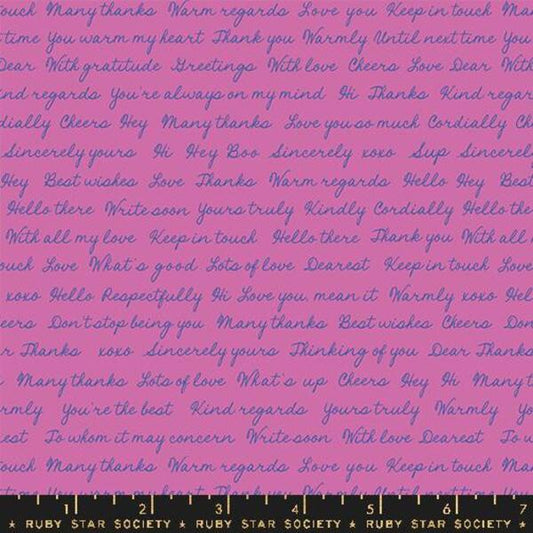 ouch Many thanks Warm regards Love you Keep in touch Man
time You warm my heart Thank you Warmly Until next time You
Dear With gratitude Greetings With love Cheers Love Dear With
nd regards You're always on my mind Hi Thanks Kind regar
dially Cheers Hey Many thanks Love you so much Cordially Ch
Sincerely yours Hi Hey Boo Sincerely xoxo Sup Sincerel
Hey Best wishes Love Thanks Warm regards Hello Hey Best
Hello there Write soon Yours truly Kindly Cordially Hello the
With all my love Keep in touch Hello there Thank you With all
ouch Love What's good Lots of love Dearest Keep in touch Love
xoxo Hello Respectfully Hi Love you, mean it Warmly xoxo Hel
eers Don't stop being you Many thanks Best wishes Cheers Don
r Thanks xoxo Sincerely yours Thinking of you Dear Thanks
Many thanks Lots of love What's up Cheers Hey Hi Many t
rmly You're the best Kind regards Yours truly Warmly Yo
est To whom it may concern Write soon With love Dearest To w
ouch Many thanks Warm regards Love you Keep in touch Man
time You warm my heart Thank you Warmly Until next time You
1 2 3 4 5 6 7
★ RUBY STAR SOCIETY ★ RUBY STAR SOCIETY ★ RUBY STAR SOCIETY ★